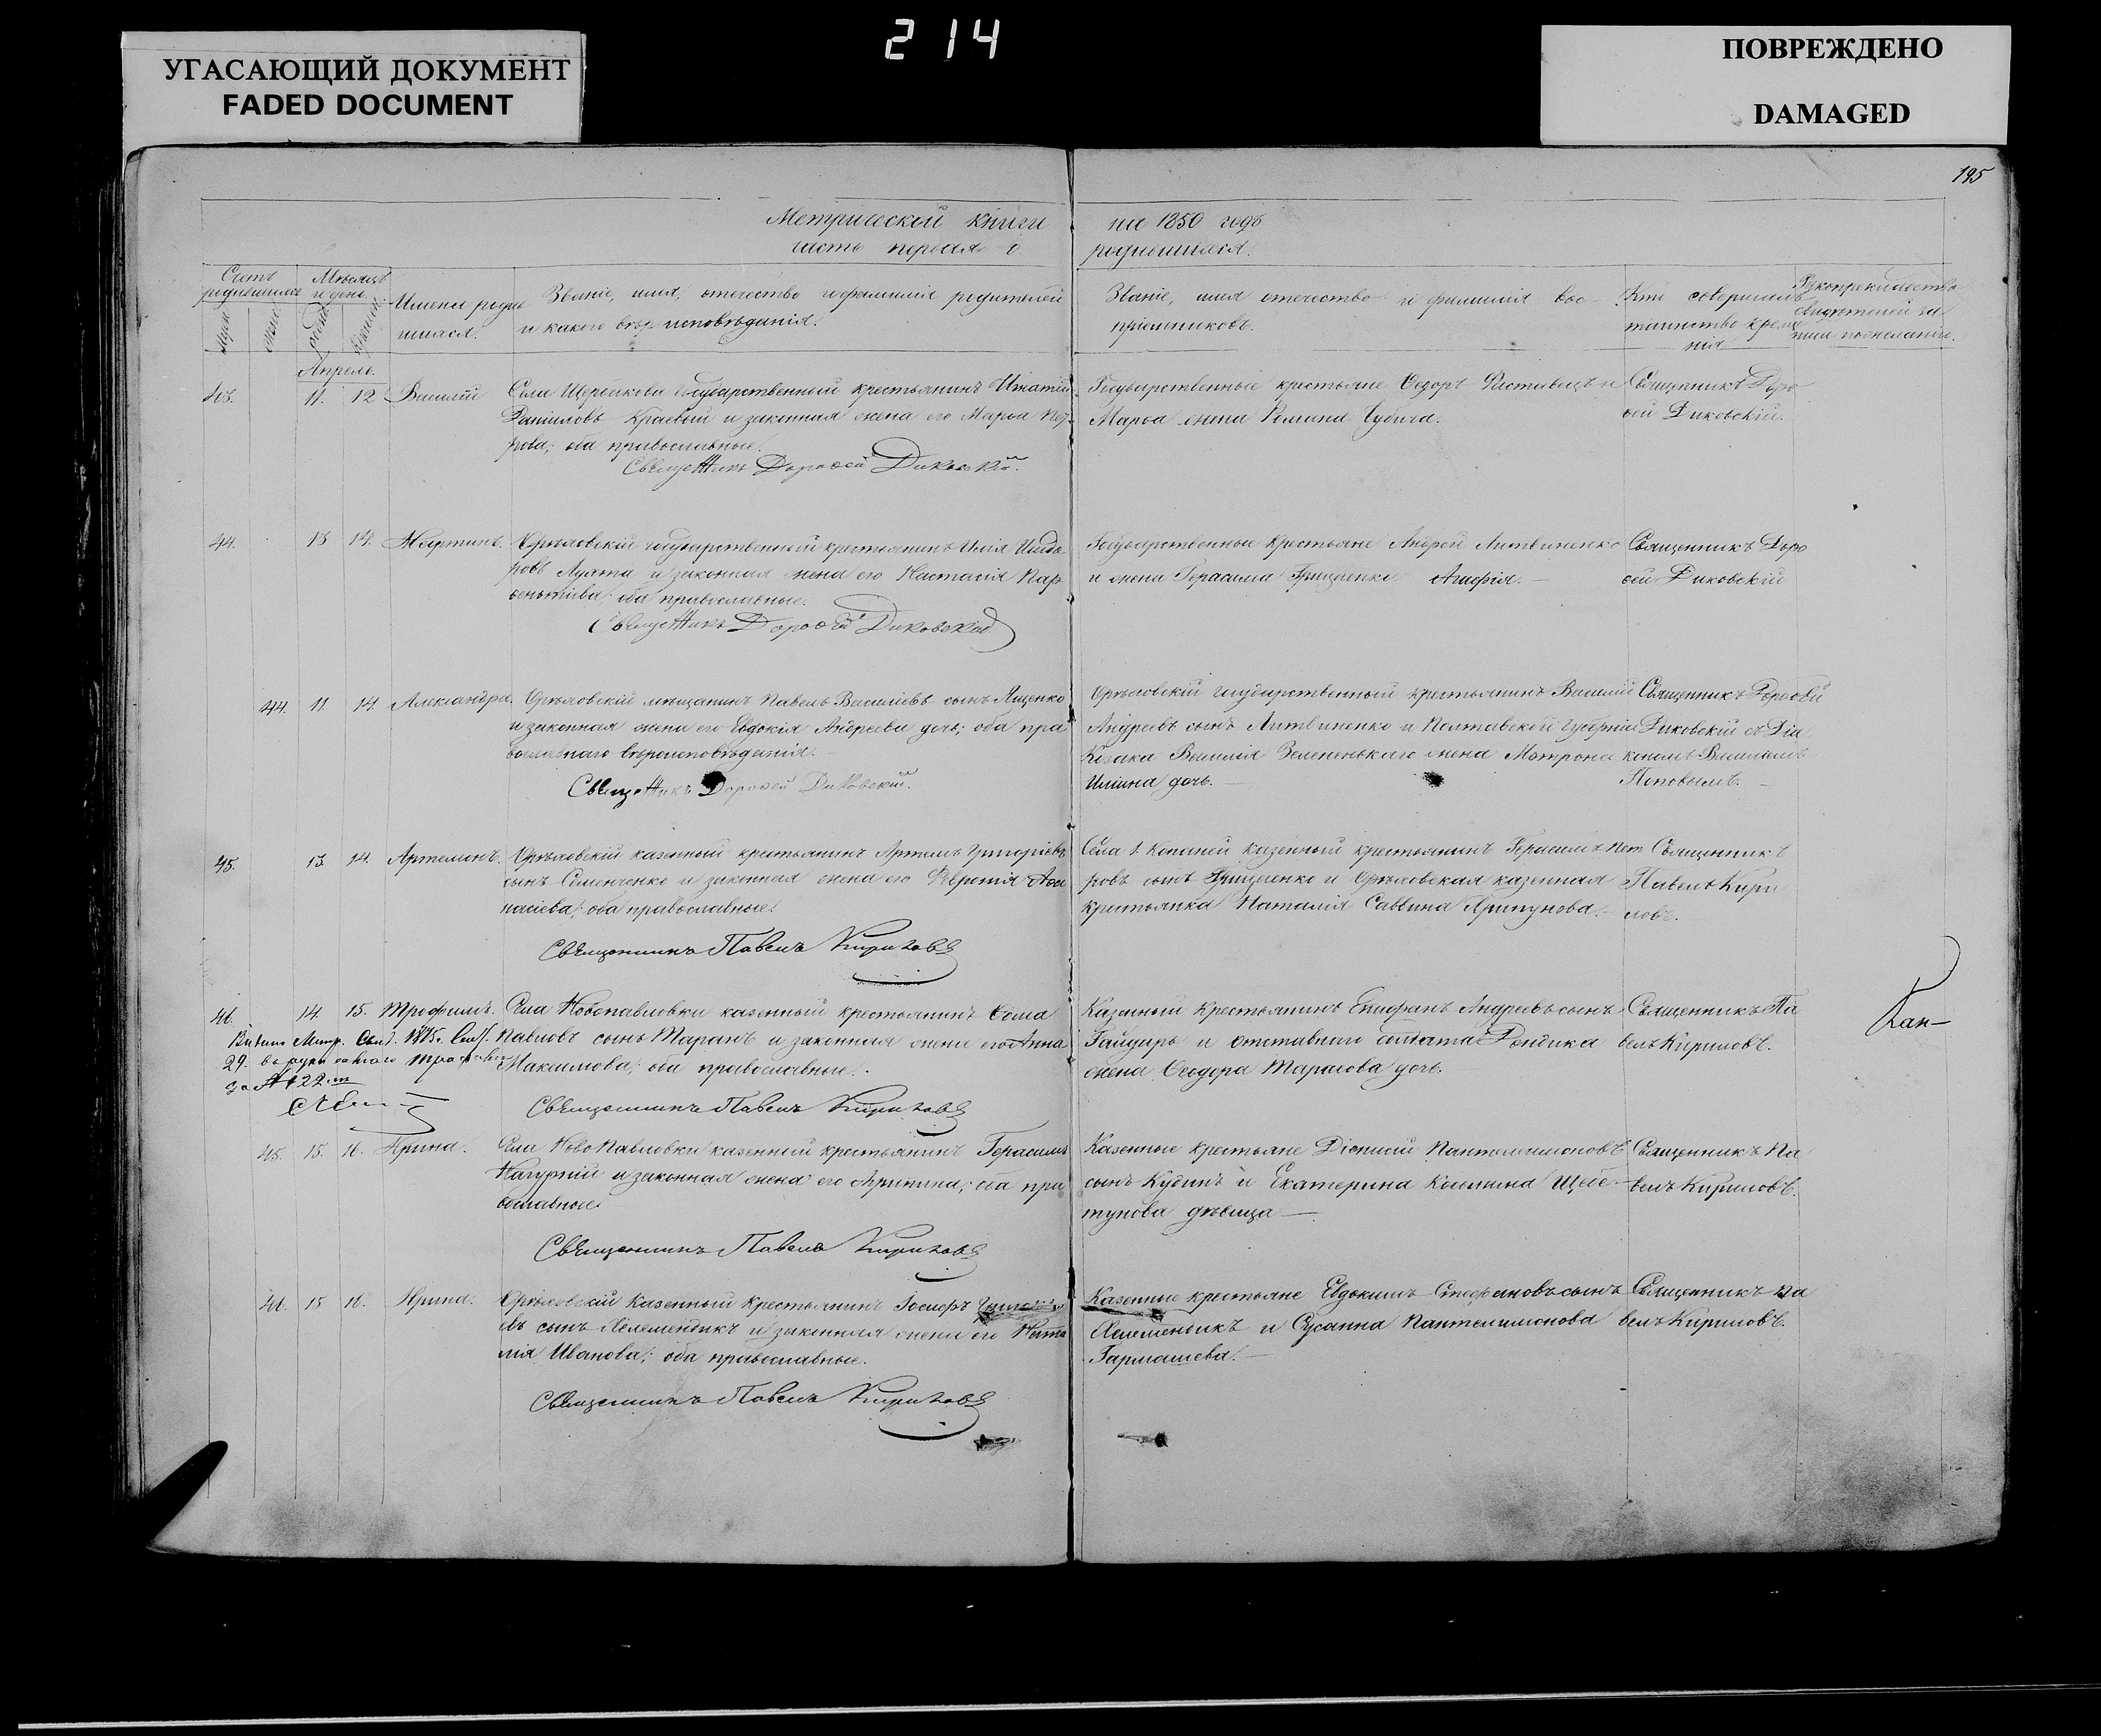 УГАСАЮЩИЙ ДОКУМЕНТ
FADED DOCUMENT
214
ПОВРЕЖДЕНО
DAMAGED
195
Метрической книги на 1850 годъ
часть первая о родившихся.
Счетъ родившихся
Мѣсяцъ и день.
Имена родившихся.
Званіе, имя, отечество и фамилія родителей
и какого вѣроисповѣданія.
Званіе, имя отечество и фамилія вос-
пріемниковъ.
Кто совершалъ
таинство креще
нія
Рукоприкладство
свидѣтелей за
писи по желанію.
Апрель.
43. 11. 12 Василій
Села Щербакова Государственный крестьянинъ Игнатій
Даниловъ Краевый и законная жена его Марѳа Пет-
рова; оба православные.
Священникъ Дороѳей Диковскій.
Государственные крестьяне Ѳедоръ и
Марѳа жена Романа
Священникъ Доро
ѳей Диковскій.
44. 13 14. Мартинъ.
Орѣховскій государственный крестьянинъ Илія Исидо
ровъ и законная жена его Настасія Пар
ѳеньтіева; оба православные.
Священникъ Дороѳей Диковскій
Государственные крестьяне Андрей Литвиненко
и жена Герасима Грищенко Агафія. —
Священникъ Доро
ѳей Диковскій
44. 11 14. Александра.
Орѣховскій мѣщанинъ Павелъ Васильевъ сынъ Яценко
и законная жена его Евдокія Андреева дочь; оба пра
вославнаго вѣроисповѣданія.
Священникъ Дороѳей Диковскій.
Орѣховскій государственный крестьянинъ Василій
Андреевъ сынъ Литвиненко и Полтавской губерніи
Козака Василія Зелененькаго жена Матрона
Ильина дочь. —
Священникъ Дороѳей
Диковскій съ Діа
кономъ Василіемъ
Поповымъ. —
45. 13 14. Артемонъ.
Орѣховскій казенный крестьянинъ Артемъ Григоріевъ
сынъ Семенченко и законная жена его Февронія Аѳа
насіева; оба православные.
Священникъ Павелъ Кириловъ
Села 1. Копаней казенный крестьянинъ Герасимъ Пет
ровъ сынъ Грищенко и Орѣховская казенная
крестьянка Наталія Саввина Хрипунова. —
Священникъ
Павелъ Кири
ловъ.
46. 14. 15. Трофимъ.
Села Новопавловки казенный крестьянинъ Ѳома
Павловъ сынъ Таранъ и законная жена его Анна
Максимова; оба православные.
Священникъ Павелъ Кириловъ
29.
за № 122.
Казенный крестьянинъ Епифанъ Андреевъ сынъ
Гайдаръ и отставного солдата
жена Ѳеодора Тарасова дочь.
Священникъ Па
велъ Кириловъ.
45. 15. 16. Ирина.
Села Новопавловки казенный крестьянинъ Герасимъ
Нагурній и законная жена его Агрипина; оба пра
вославные.
Священникъ Павелъ Кириловъ
Казенные крестьяне Діонисій Пантелеимоновъ
сынъ Кудинъ и Екатерина Козмина Щебе-
тунова дѣвица —
Священникъ Па
велъ Кириловъ.
46. 15 16. Ирина.
Орѣховскій казенный крестьянинъ Іосифъ
въ сынъ Хелемендикъ и законная жена его Ната
лія Иванова; оба православные.
Священникъ Павелъ Кириловъ
Казенные крестьяне Евдокимъ Стефановъ сынъ
Хелемендикъ и Сусанна Пантелимонова
Гармашева. —
Священникъ Па
велъ Кириловъ.